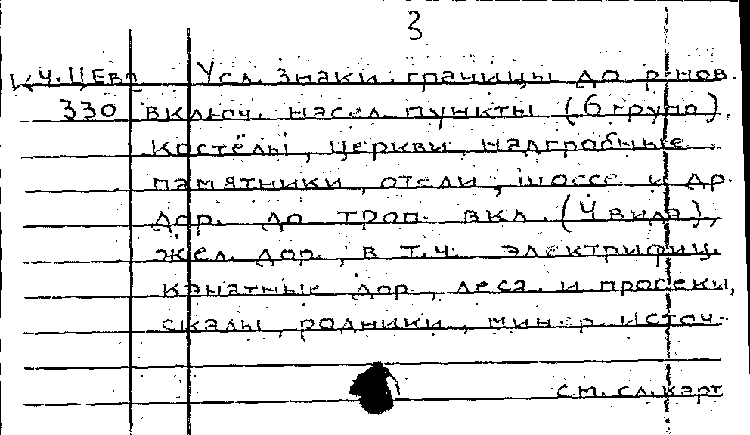 3
К Ч.ЦЕвр Усл. знаки: границы до р-нов.
330 включ. насел. пункты (6 групп),
костёлы, церкви, надгробные
памятники, отели, шоссе и др.
дор. до троп вкл. (4 вида),
жел. дор., в т.ч. электрифиц.
канатные дор., леса и просеки,
скалы, родники, минер. источ.
см. сл. карт